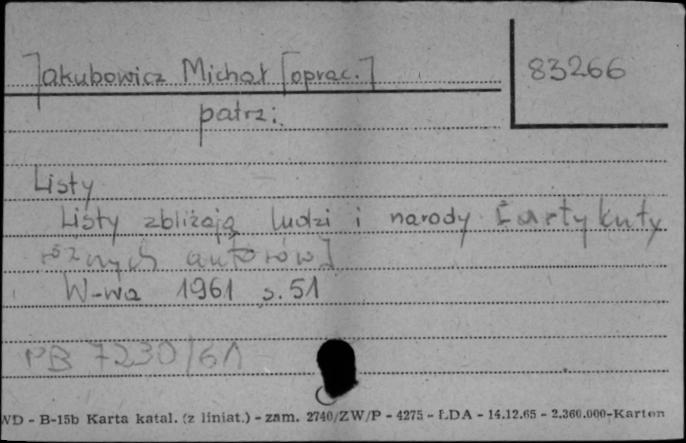 Jakubowicz Michał [oprac.]
83266
patrz:
Listy
Listy zbliżają ludzi i narody [artykuły
różnych autorów]
W-wa 1961 s. 51
PB 7230/61
WD - B-15b Karta katal. (z liniat.) - zam. 2740/ZW/P - 4275 - ŁDA - 14.12.65 - 2.360.000-Karton